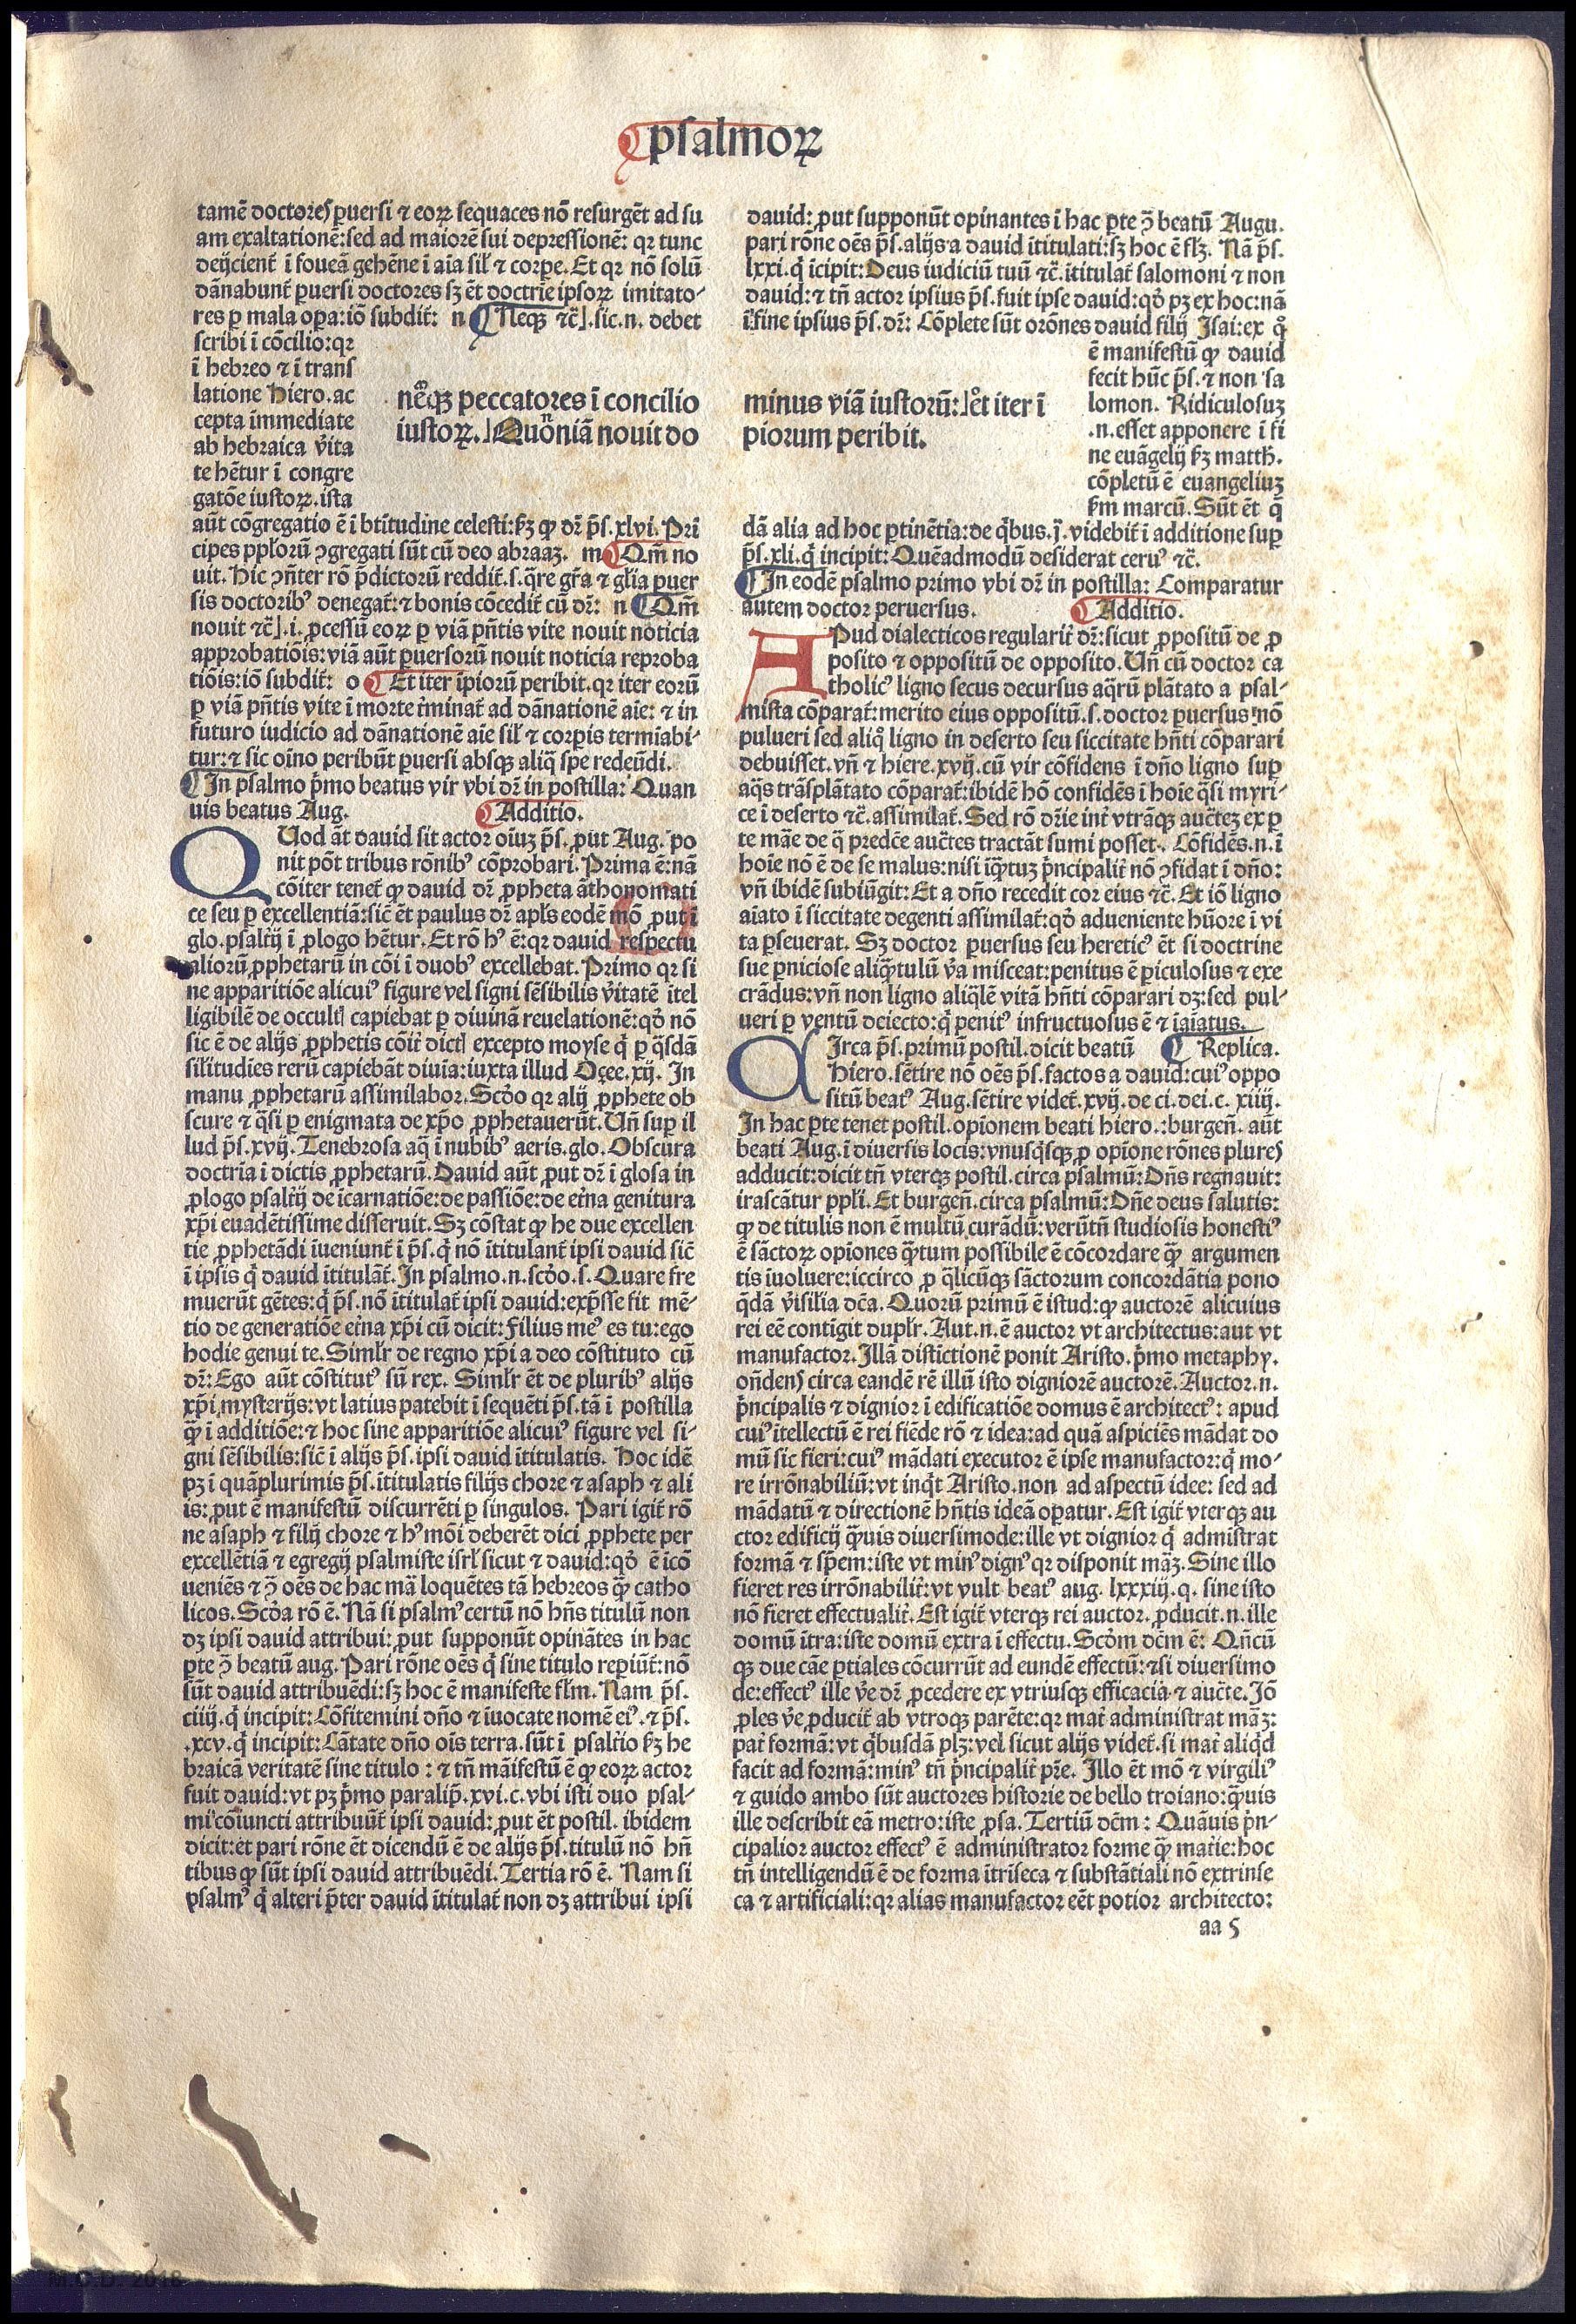 psalmoꝝ
tamē doctores ꝑuersi ⁊ eoꝝ sequaces nō resurgēt ad su
am exaltationē: sed ad maiorē sui depressionē: qꝛ tunc
deijcient̄ ī foueā gehēne ī aīa sil̄ ⁊ corꝑe. Et qꝛ nō solū
dānabunt̄ ꝑuersi doctores sꝫ ēt doctrīe ipsoꝝ imitato-
res ꝑ mala oꝑa: iō subdit̄: n Neqꝫ ⁊c̄]. sic .n. debet
scribi ī cōcilio: qꝛ
ī hebreo ⁊ ī trans
latione Hiero. ac
cepta immediate
ab hebraica v̄ita
te hētur ī congre
gatōe iustoꝝ. ista
neqꝫ peccatores ī concilio
iustoꝝ.] Quōniā nouit do
aūt cōgregatio ē ī btītudine celesti: k̄ꝫ ꝙ dr̄ p̄s. xlvi. Pri
cipes ppl̄orū ꝯgregati sūt cū deo abraaꝫ. m Qm̄ no
uit. Hic ꝯn̄ter rō p̄dictorū reddit̄ .s. q̄re gr̄a ⁊ gl̄ia puer
sis doctoribꝰ denegat̄: ⁊ bonis cōcedit̄ cū dr̄: n Qm̄
nouit ⁊c̄]. i. ꝓcessū eoꝝ ꝑ viā pn̄tis vite nouit noticia
approbatiōis: viā aūt ꝑuersorū nouit noticia reproba
tiōis: iō subdit̄: o Et iter īpiorū peribit. qꝛ iter eorū
ꝑ viā pn̄tis vite ī morte t̄minat̄ ad dānationē aīe: ⁊ in
futuro iudicio ad dānationē aīe sil̄ ⁊ corꝑis termiabi-
tur: ⁊ sic oīno peribūt ꝑuersi absqꝫ aliq̄ spe redeūdi.
In psalmo p̄mo beatus vir vbi dr̄ in postilla: Quan
uis beatus Aug. Additio.
Quod āt dauid sit actor oīuꝫ p̄s. ꝓut Aug. po
nit pōt tribus rōnibꝰ cōprobari. Prima ē: nā
cōiter tenet̄ ꝙ dauid dr̄ ꝓpheta āthonomati
ce seu ꝑ excellentiā: sic̄ ēt paulus dr̄ apl̄s eodē mō ꝓut ī
glo. psalt̄ij ī ꝓlogo hētur. Et rō hꝰ ē: qꝛ dauid respectu
aliorū ꝓphetarū in cōi ī duobꝰ excellebat. Primo qꝛ si
ne apparitiōe alicuiꝰ figure vel signi sēsibilis v̄itatē ītel
ligibilē de occult] capiebat ꝑ diuinā reuelationē: qd̄ nō
sic ē de alijs ꝓphetis cōit̄ dict] excepto moyse q̄ ꝑ q̄sdā
sil̄itudies rerū capiebāt diuīa: iuxta illud Oçee. xij. In
manu ꝓphetarū assimilabor. Scd̄o qꝛ alij ꝓphete ob
scure ⁊ q̄si ꝑ enigmata de xp̄o ꝓphetauerūt. Un̄ suꝑ il
lud p̄s. xvij. Tenebrosa aq̄ ī nubibꝰ aeris. glo. Obscura
doctrīa ī dictis ꝓphetarū. Dauid aūt ꝓut dr̄ ī glosa in
ꝓlogo psalt̄ij de īcarnatiōe: de passiōe: de et̄na genitura
xp̄i euadētissime disseruit. Sꝫ cōstat ꝙ he due excellen
tie ꝓphetādi īueniunt̄ ī p̄s. q̄ nō ītitulant̄ ipsi dauid sic̄
ī ipsis q̄ dauid ītitulāt̄. In psalmo .n. scd̄o .s. Quare fre
muerūt gētes: q̄ p̄s. nō ītitulat̄ ipsi dauid: exp̄sse fit mē-
tio de generatiōe et̄na xp̄i cū dicit: Filius meꝰ es tu: ego
hodie genui te. Siml̄r de regno xp̄i a deo cōstituto cū
dr̄: Ego aūt cōstitutꝰ sū rex. Siml̄r ēt de pluribꝰ alijs
xp̄i mysterijs: vt latius patebit ī sequēti p̄s. tā ī postilla
ꝙ̄ ī additiōe: ⁊ hoc sine apparitiōe alicuiꝰ figure vel si-
gni sēsibilis: sic̄ ī alijs p̄s. ipsi dauid ītitulatis. Hoc idē
pꝫ ī quāplurimis p̄s. ītitulatis filijs chore ⁊ asaph ⁊ ali
is: ꝓut ē manifestū discurrēti ꝑ singulos. Pari igit̄ rō
ne asaph ⁊ filij chore ⁊ hꝰmōi deberēt dici ꝓphete per
excellētiā ⁊ egregij psalmiste isrl̄ sicut ⁊ dauid: qd̄ ē īcō
ueniēs ⁊ ꝯ̄ oēs de hac mā loquētes tā hebreos ꝙ̄ catho
licos. Scd̄a rō ē. Nā si psalmꝰ certū nō hn̄s titulū non
dꝫ ipsi dauid attribui: ꝓut supponūt opināntes in hac
ꝑte ꝯ̄ beatū aug. Pari rōne oēs q̄ sine titulo reꝑiūt̄: nō
sūt dauid attribuēdi: sꝫ hoc ē manifeste fl̄m. Nam p̄s.
ciiij. q̄ incipit: Cōfitemini dn̄o ⁊ īuocate nomē eiꝰ. ⁊ p̄s.
.xcv. q̄ incipit: Cātate dn̄o oīs terra. sūt ī psalt̄io k̄ꝫ he
braicā veritatē sine titulo: ⁊ tn̄ māifestū ē ꝙ eoꝝ actor
fuit dauid: vt pꝫ p̄mo paralip̄. xvi. c. vbi isti duo psal-
mi cōiuncti attribuūt̄ ipsi dauid: ꝓut ēt postil. ibidem
dicit: et pari rōne ēt dicendū ē de alijs p̄s. titulū nō hn̄
tibus ꝙ sūt ipsi dauid attribuēdi. Tertia rō ē. Nam si
psalmꝰ q̄ alteri p̄ter dauid ītitulat̄ non dꝫ attribui ipsi
dauid: ꝓut supponūt opinantes ī hac ꝑte ꝯ̄ beatū Augu.
pari rōne oēs p̄s. alijs a dauid ītitulati: sꝫ hoc ē fl̄ꝫ. Nā p̄s.
lxxi. q̄ īcipit: Deus iudiciū tuū ⁊c̄. ītitulat̄ salomoni ⁊ non
dauid: ⁊ tn̄ actor ipsius p̄s. fuit ipse dauid: qd̄ pꝫ ex hoc: nā
ī fine ipsius p̄s. dr̄: Cōplete sūt orōnes dauid filij Isai: ex q̊
ē manifestū ꝙ dauid
fecit hūc p̄s. ⁊ non sa
lomon. Ridiculosuꝫ
.n. esset apponere ī fi
ne euāgelij k̄ꝫ matth̄.
cōpletū ē euangeliuꝫ
k̄m marcū. Sūt ēt q̄
minus viā iustorū:] et iter ī
piorum peribit.
dā alia ad hoc ꝑtinētia: de q̄bus .j. videbit̄ ī additione suꝑ
p̄s. xli. q̄ incipit: Quēadmodū desiderat ceruꝰ ⁊c̄.
In eodē psalmo primo vbi dr̄ in postilla: Comparatur
autem doctor peruersus. Additio.
Apud dialecticos regularit̄ dr̄: sicut ꝓpositū de ꝓ
posito ⁊ oppositū de opposito. Un̄ cū doctor ca
tholicꝰ ligno secus decursus aq̄rū plātato a psal-
mista cōparat̄: merito eius oppositū .s. doctor ꝑuersus nō
pulueri sed aliq̊ ligno in deserto seu siccitate hn̄ti cōparari
debuisset. vn̄ ⁊ hiere. xvij. cū vir cōfidens ī dn̄o ligno suꝑ
aq̄s trāsplātato cōparat̄: ibidē hō confidēs ī hoīe q̄si myri-
ce ī deserto ⁊c̄. assimilat̄. Sed rō dr̄ie int̄ vtrāqꝫ auc̄teꝫ ex ꝑ
te māe de q̄ predc̄e auc̄tes tractāt sumi posset. Cōfidēs .n. ī
hoīe nō ē de se malus: nisi īqꝫ̄tuꝫ p̄ncipalit̄ nō ꝯfidat ī dn̄o:
vn̄ ibidē subiūgit: Et a dn̄o recedit cor eius ⁊c̄. Et iō ligno
aīato ī siccitate degenti assimilat̄: qd̄ adueniente hūore ī vi
ta ꝑseuerat. Sꝫ doctor ꝑuersus seu hereticꝰ ēt si doctrine
sue ꝑniciose aliqꝫ̄tulū v̄a misceat: penitus ē ꝑiculosus ⁊ exe
crādus: vn̄ non ligno aliq̄lē vitā hn̄ti cōparari dꝫ: sed pul-
ueri ꝑ ventū deiecto: q̄ penitꝰ infructuosus ē ⁊ īaīatus.
Circa p̄s. primū postil. dicit beatū Replica.
Hiero. sētire nō oēs p̄s. factos a dauid: cuiꝰ oppo
sitū beatꝰ Aug. sētire videt̄. xvij. de ci. dei. c. xiiij.
In hac ꝑte tenet postil. opīonem beati hiero.: burgen̄. aūt
beati Aug. ī diuersis locis: vnusq̄sqꝫ ꝓ opīone rōnes plures
adducit: dicit tn̄ vterqꝫ postil. circa psalmū: Dn̄s regnauit:
irascātur ppl̄i. Et burgen̄. circa psalmū: Dn̄e deus salutis:
ꝙ de titulis non ē multū curādū: verūtn̄ studiosis honestiꝰ
ē sāctoꝝ opīones qꝫ̄tum possibile ē cōcordare ꝙ̄ argumen
tis īuoluere: iccirco ꝓ q̄licūqꝫ sāctorum concordātia pono
q̄dā v̄isil̄ia dc̄a. Quorū primū ē istud: ꝙ auctorē alicuius
rei eē contīgit dupl̄r. Aut .n. ē auctor vt architectus: aut vt
manufactor. Illā distictionē ponit Aristo. p̄mo metaphy.
on̄dens circa eandē rē illū isto digniorē auctorē. Auctor .n.
p̄ncipalis ⁊ dignior ī edificatiōe domus ē architectꝰ: apud
cuiꝰ ītellectū ē rei fiēde rō ⁊ idea: ad quā aspiciēs mādat do
mū sic fieri: cuiꝰ mādati executor ē ipse manufactor: q̄ mo-
re irrōnabiliū: vt inq̄t Aristo. non ad aspectū idee: sed ad
mādatū ⁊ directionē hn̄tis ideā oꝑatur. Est igit̄ vterqꝫ au
ctor edificij qꝫ̄uis diuersimode: ille vt dignior q̄ admīstrat
formā ⁊ sp̄em: iste vt minꝰ dignꝰ qꝛ disponit māꝫ. Sine illo
fieret res irrōnabilit̄: vt vult beatꝰ aug. lxxxiij. q. sine isto
nō fieret effectualit̄. Est igit̄ vterqꝫ rei auctor. ꝓducit .n. ille
domū ītra: iste domū extra ī effectu. Scd̄m dc̄m ē: Qn̄cū
qꝫ due cāe ꝑtiales cōcurrūt ad eundē effectū: ⁊si diuersimo
de: effectꝰ ille v̄e dr̄ ꝓcedere ex vtriusqꝫ efficacia ⁊ auc̄te. Iō
ꝓles v̄e ꝓducit̄ ab vtroqꝫ parēte: qꝛ mat̄ administrat māꝫ:
pat̄ formā: vt q̄busdā plꝫ: vel sicut alijs videt̄. si mat̄ aliq̄d
facit ad formā: minꝰ tn̄ p̄ncipalit̄ pr̄e. Illo ēt mō ⁊ virgiliꝰ
⁊ guido ambo sūt auctores historie de bello troiano: qꝫ̄uis
ille describit eā metro: iste ꝓsa. Tertiū dc̄m: Quāuis p̄n-
cipalior auctor effectꝰ ē administrator forme ꝙ̄ mat̄ie: hoc
tn̄ intelligendū ē de forma ītrīseca ⁊ substātiali nō extrinse
ca ⁊ artificiali: qꝛ alias manufactor eēt potior architecto:
aa 5
M.C.D. 2018